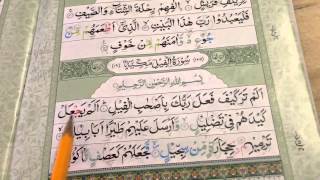 قُرَيْشٍ اٖلٰفِهِمْ رِحْلَةَ الشِّتَآءِ وَالصَّيْفِ
فَلْيَعْبُدُوا رَبَّ هٰذَا الْبَيْتِ الَّذِىٓ اَطْعَمَهُمْ مِنْ
جُوعٍ وَاٰمَنَهُمْ مِنْ خَوْفٍ
سُورَةُ الْفِيلِ مَكِّيَّةٌ
بِسْمِ اللهِ الرَّحْمٰنِ الرَّحِيمِ
اَلَمْ تَرَ كَيْفَ فَعَلَ رَبُّكَ بِاَصْحَابِ الْفِيلِ اَلَمْ يَجْعَلْ
كَيْدَهُمْ فِى تَضْلِيلٍ وَاَرْسَلَ عَلَيْهِمْ طَيْرًا اَبَابِيلَ
تَرْمِيهِمْ بِحِجَارَةٍ مِنْ سِجِّيلٍ فَجَعَلَهُمْ كَعَصْفٍ مَاْكُولٍ